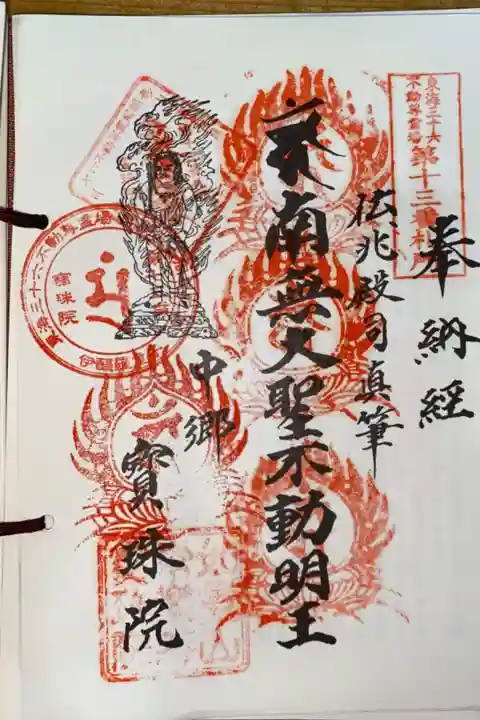 東海三十六
不動尊霊場
第十三番札所
奉納経
伝兆殿司真筆
南無大聖不動明王
中郷
寳珠院
東海三十六不動尊霊場
寳珠院